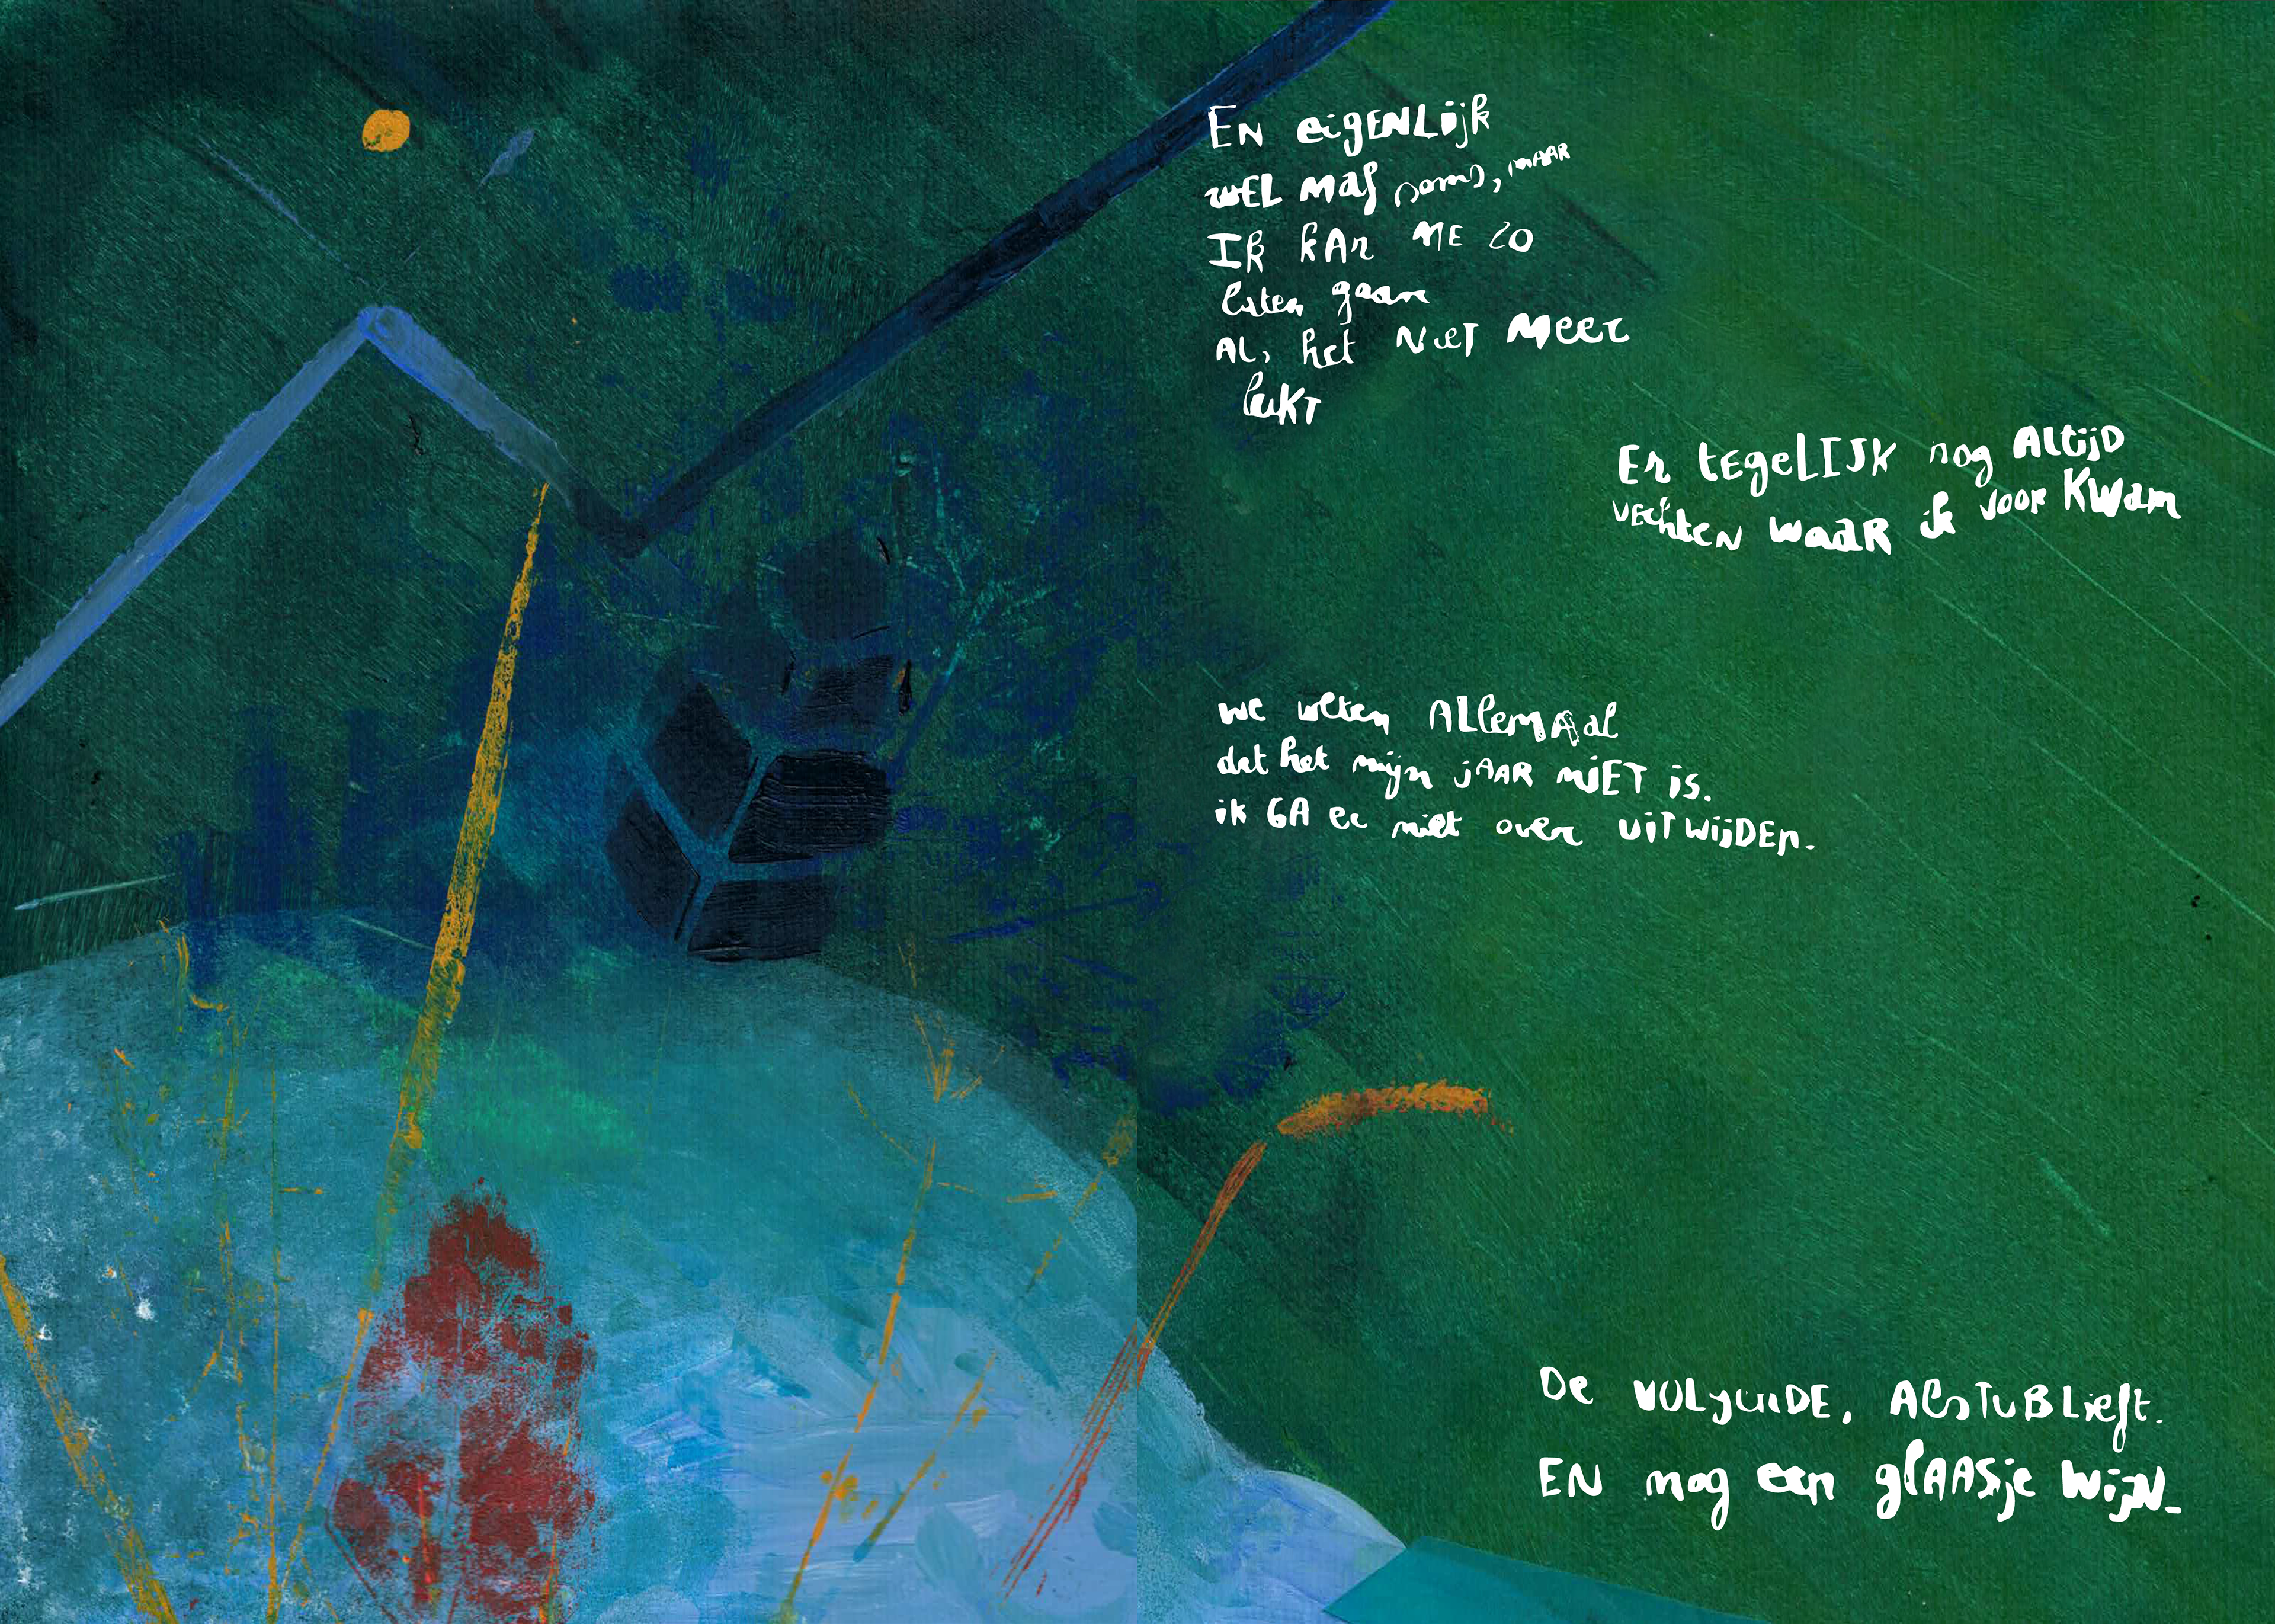 EN eigENLijk
WEL Maf soms, MAAR
Ik kAn ME ZO
laten gaan
ALs het NieT Meer
lukT
En tEgeLIJK nog ALtijD
VEchteN WaaR ik voor KWam
We weten ALlemAal
dat het mijn jAAR NiET is.
ik GA er niet over UiTWijDEn.
De VOLgenDE, ALsTuBLieft.
EN mog een glAASje WijN.